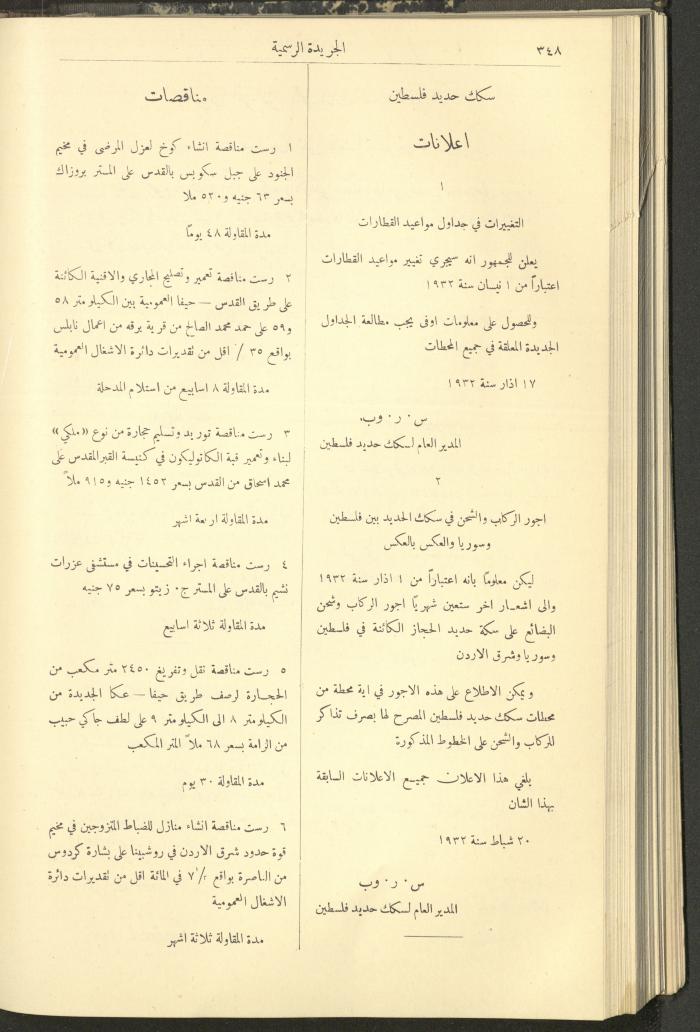 ٣٤٨
الجريدة الرسمية
سكك حديد فلسطين
اعلانات
١
التغييرات في جداول مواعيد القطارات
يعلن للجمهور انه سيجري تغيير مواعيد القطارات
اعتباراً من ١ نيسان سنة ١٩٣٢
وللحصول على معلومات اوفى يجب مطالعة الجداول
الجديدة المعلقة في جميع المحطات
١٧ اذار سنة ١٩٣٢
س · ر · وب
المدير العام لسكك حديد فلسطين
٢
اجور الركاب والشحن في سكك الحديد بين فلسطين
وسوريا والعكس بالعكس
ليكن معلوماً بانه اعتباراً من ١ اذار سنة ١٩٣٢
والى اشعار اخر ستعين شهرياً اجور الركاب وشحن
البضائع على سكة حديد الحجاز الكائنة في فلسطين
وسوريا وشرق الاردن
ويمكن الاطلاع على هذه الاجور في اية محطة من
محطات سكك حديد فلسطين المصرح لها بصرف تذاكر
للركاب والشحن على الخطوط المذكورة
يلغي هذا الاعلان جميع الاعلانات السابقة
بهذا الشان
٢٠ شباط سنة ١٩٣٢
س · ر · وب
المدير العام لسكك حديد فلسطين
مناقصات
١ رست مناقصة انشاء كوخ لعزل المرضى في مخيم
الجنود على جبل سكوبس بالقدس على المستر بروزاك
بسعر ٦٣ جنيه و٥٢٠ ملا
مدة المقاولة ٤٨ يوماً
٢ رست مناقصة تعمير وتصليح المجاري والاقنية الكائنة
على طريق القدس — حيفا العمومية بين الكيلومتر ٥٨
و٥٩ على حمد محمد الصالح من قرية برقه من اعمال نابلس
بواقع ٣٥ ٪ اقل من تقديرات دائرة الاشغال العمومية
مدة المقاولة ٨ اسابيع من استلام المدحلة
٣ رست مناقصة توريد وتسليم حجارة من نوع «ملكي»
لبناء وتعمير قبة الكاتوليكون في كنيسة القبر المقدس على
محمد اسحاق من القدس بسعر ١٤٥٢ جنيه و٩١٥ ملاً
مدة المقاولة اربعة اشهر
٤ رست مناقصة اجراء التحسينات في مستشفى عزرات
نشيم بالقدس على المستر ج. زيتو بسعر ٧٥ جنيه
مدة المقاولة ثلاثة اسابيع
٥ رست مناقصة نقل وتفريغ ٢٤٥٠ متر مكعب من
الحجارة لرصف طريق حيفا — عكا الجديدة من
الكيلومتر ٨ الى الكيلومتر ٩ على لطف جاكي حبيب
من الرامة بسعر ٦٨ ملاً المتر المكعب
مدة المقاولة ٣٠ يوم
٦ رست مناقصة انشاء منازل للضباط المتزوجين في مخيم
قوة حدود شرق الاردن في روشبينا على بشارة كردوس
من الناصرة بواقع ٧ في المائة اقل من تقديرات دائرة
الاشغال العمومية
مدة المقاولة ثلاثة اشهر